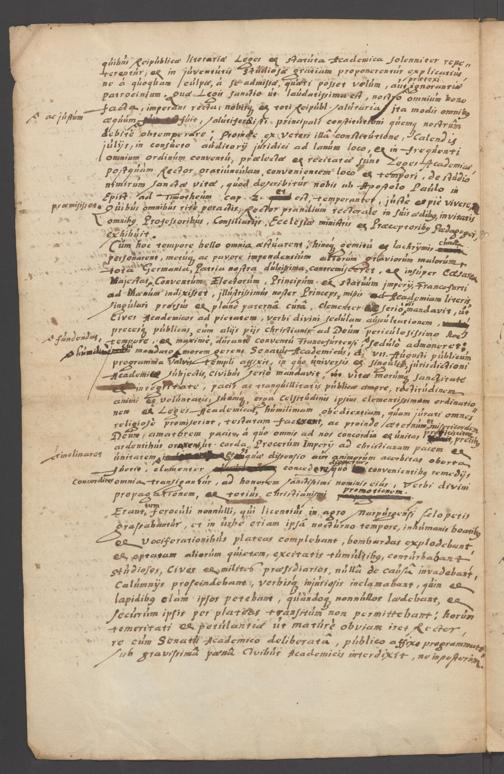 quibus Reipublicæ literariæ Leges et statuta Academica solenniter repe-
terentur, et in juventutis studiosæ gratiam proponerentur explicatius
ne à quoquam culpa, à se admissa, quasi posset velum, aut ignorantiæ
patrocinium. Quæ Legum sanctio ut laudatissima est, nostro omnium bono
facta, imperant rectus nobis, et toti Reipubl. salutaria, ita modis omnibus
ac justum
æquum salutiferæ isti principali constitutioni quemq nostrum
debite obtemperare; Proinde ex veteri illa constitutione, Calendis
Julijs, in consueto auditorij juridici ad Lanum loco, et in frequenti
omnium ordinum conventu, prælectæ et recitatæ sunt Leges Academicæ
postquam Rector, oratiunculam, convenientem loco et tempori, de studio
nimirum sanctæ vitæ, quod describitur nobis ab Apostolo Paulo in
Epist. ad Timotheum cap. 2. et est, temperanter, juste et pie vivere,
præmisisset
Quibus omnibus rite peractis, Rector prandium rectorale in suis ædibus, invitatis
omnibus Professoribus, Consiliarijs, Ecclesiæ ministris et Præceptoribus Pædagogij,
exhibuit.
Cum hoc tempore bello omnia arderent, hincq gemitu et lachrymis
personarent, metuq ac pavore impendentium aliorum graviorum malorum
tota Germania, Patria nostra dulcissima, contremisceret, et insuper Cæsarea
Majestas, Conventum Electorum, Principum et statuum imperij, Francofurti
ad Mœnum indixisset, illustrissimus noster Princeps, misso ad Academiam literis
singulari prorsus et plane paterna cura, clementer et serio mandavit, ut
Cives Academicos ad pietatem, verbi divini sedulam auscultationem,
preces publicas, cum alijs pijs Christianis ad Deum periculosissimo hoc
tempore, et maxime, durante conventu Francofurtensi sedulo admoneret;
fundendas,
mandato morem gerens Senatus Academicus, d. VII. Augusti publicum
programma valvis templi affixit, in quo universis et singulis jurisdictioni
Academicæ subjectis, civibus serio mandavit, ut vitæ morumq sanctitate
et integritate, pacis ac tranquillitatis publicæ amore, rectitudinem
animi et voluntatis, suamq erga Celsitudinis ipsius clementissimam ordinatio-
nem et Leges Academicas humilimam obedientiam, quam jurati omnes
religiose promiserint, testatam facerent, ac proinde æternum misericordem
Deum, amatorem pacis, à quo omnis ad nos concordia et unitas, precibus
ardentibus orarent corda Procerum Imperij ad christianam pacem et
inclinaret
unitatem eòque dispensio aut animorum acerbitas oborta
fuerit, clementer concederet, quo convenientibus remedijs
Concordibus omnia transigantur, ad honorem sanctissimi nominis eius, verbi divini
propagationem, et totius christianismi promotionem.
Erant tum feroculi nonnulli, qui licentius in agro Marpurgensi sclopetis
grassabantur, et in urbe etiam ipsa nocturno tempore, inhumanis boatibus
et vociferationibus plateas complebant, bombardas explodebant,
et optatam aliorum quietem, excitatis tumultibus, conturbabant
studiosos, Cives et milites præsidiarios, nulla de causa invadebant,
Calumnijs proscindebant, verbisq injuriosis inclamabant, quin et
lapidibus clam ipsos petebant, quandoq nonnullos lædebant, et
securum ipsis per plateas transitum non permittebant; horum
temeritati et petulantiæ ut mature obviam iret Rector,
re cum Senatu Academico deliberata, publico affixo programmate
sub gravissima pœna Civibus Academicis interdixit, ne imposterum